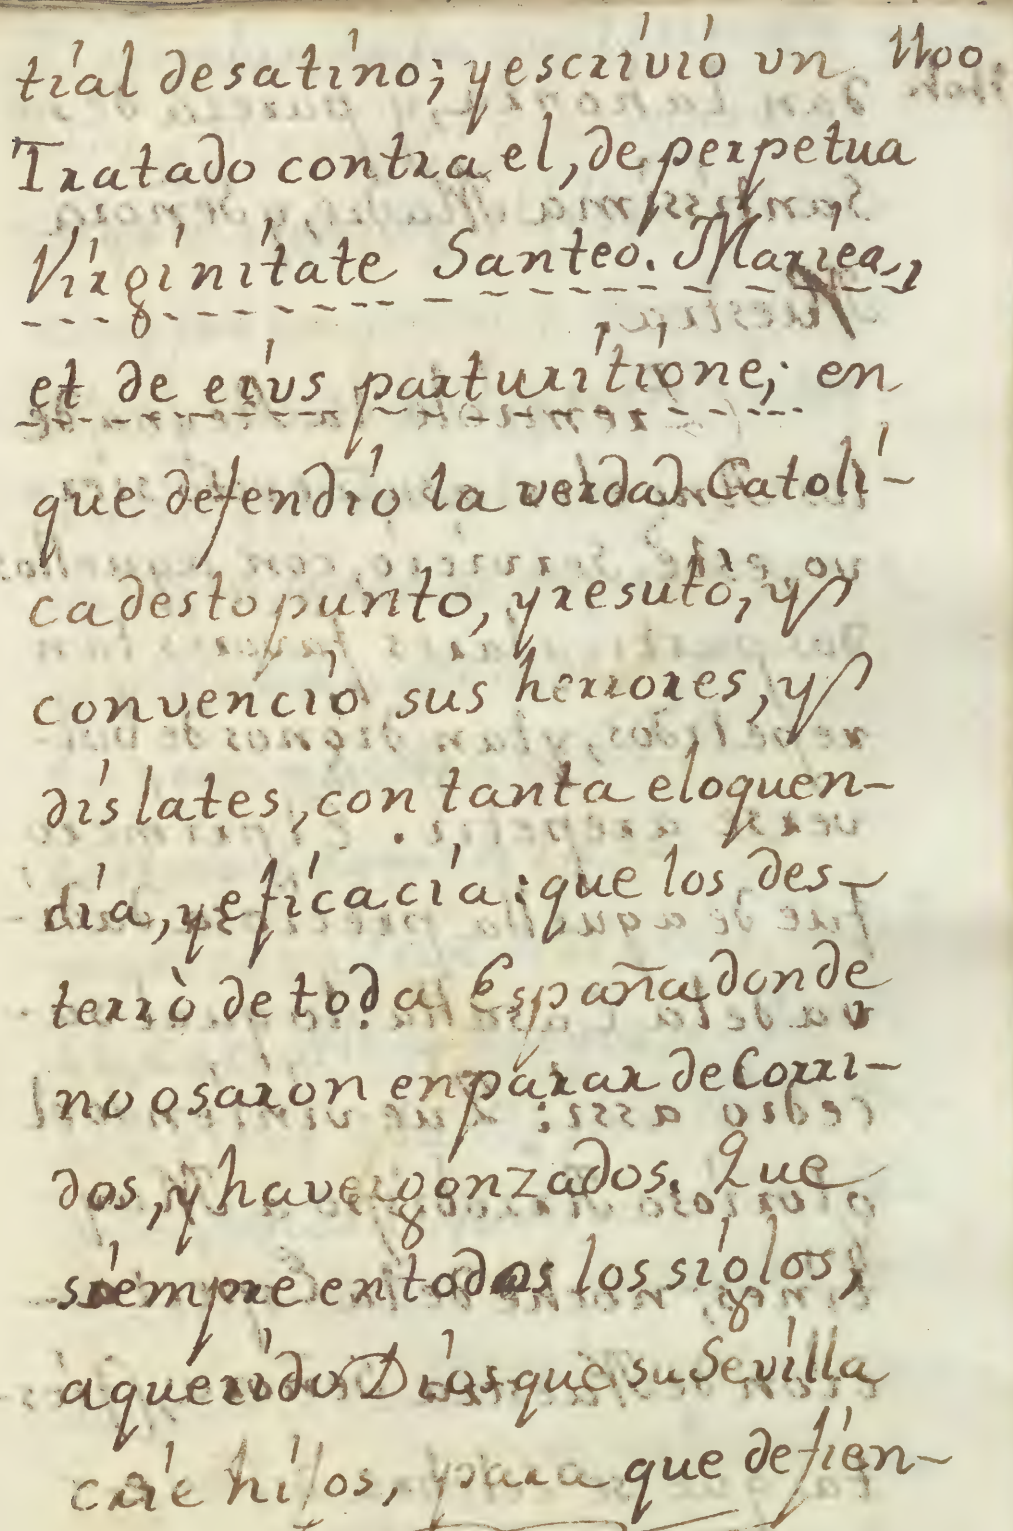 tial desatino; yescrivio vn 1100.
Tratado contra el, de perpetua
Virginitate Santeo. Mariea,
et de eius parturitione; en
que defendio la verdad Catoli-
ca desto punto, yresutò, y
convencio sus herrores, y
dislates, con tanta eloquen-
dia, yeficacia: que los des-
terrò de toda España donde
no osaron enparar de Corri-
dos, y havergonzados. Que
siempre en todos los siglos,
aquerido Dios que su Sevilla
crie hijos, para que defien-